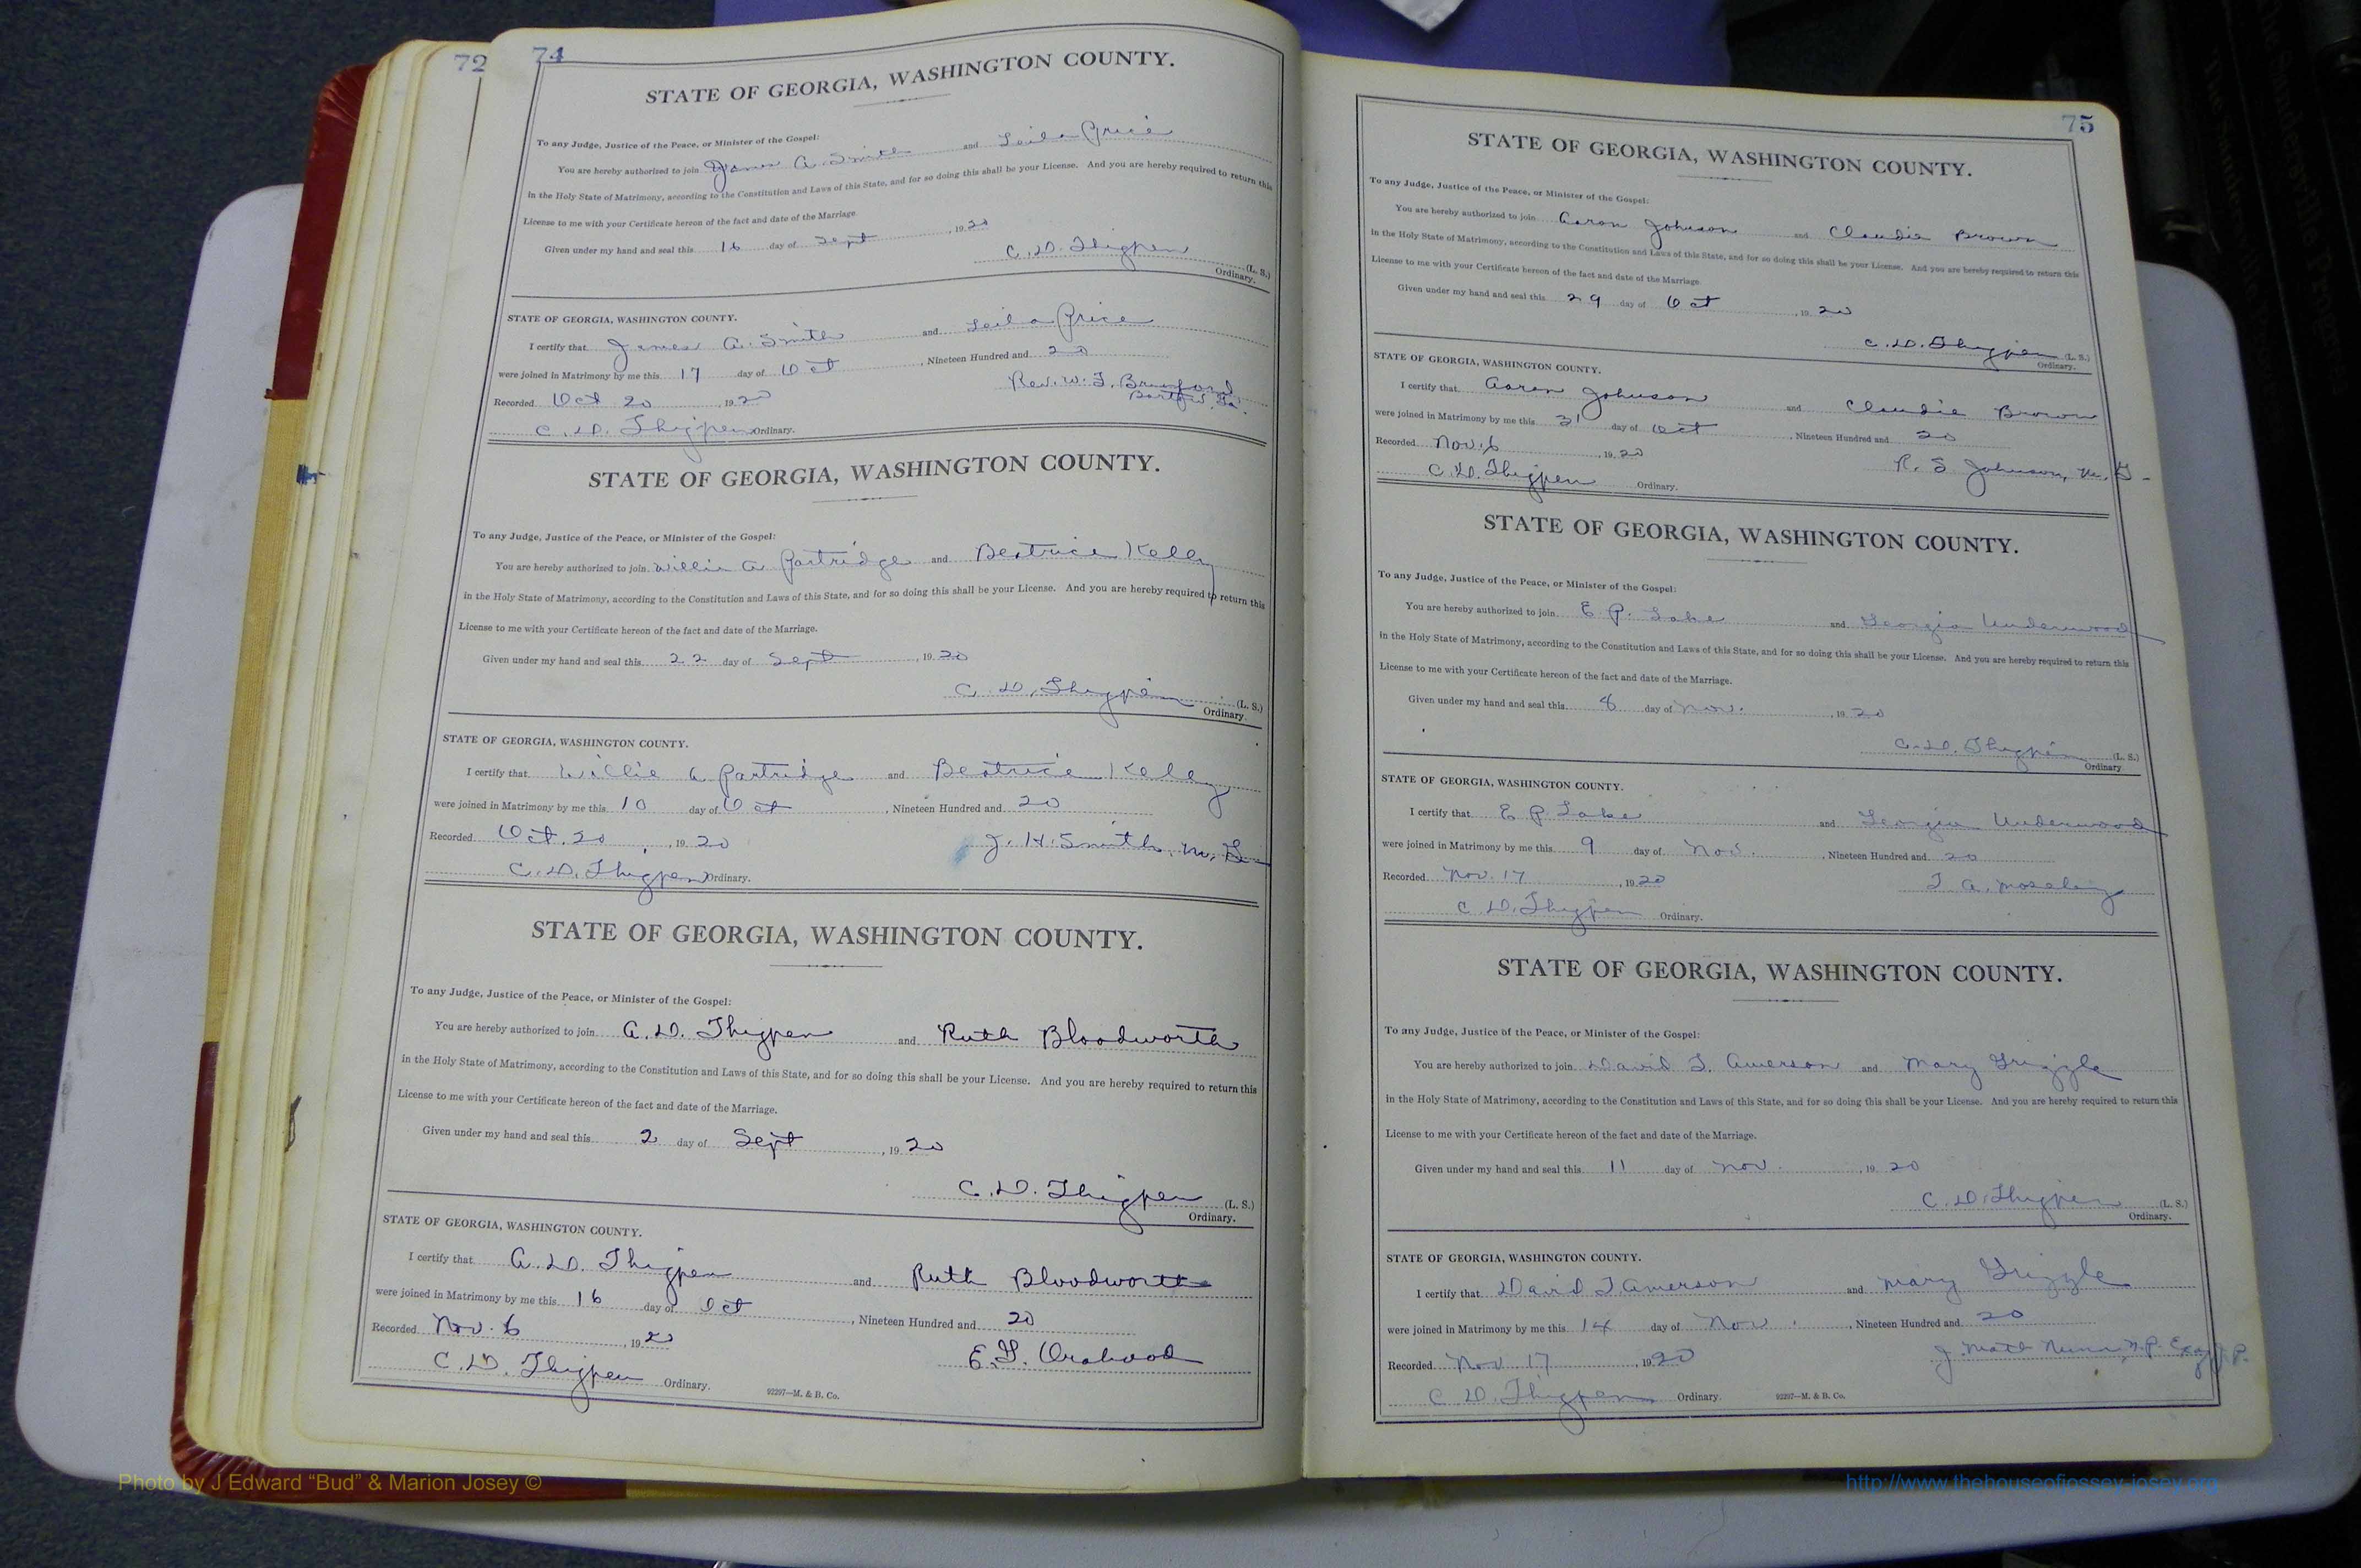 72
74
STATE OF GEORGIA, WASHINGTON COUNTY.
To any Judge, Justice of the Peace, or Minister of the Gospel:
You are hereby authorized to join James A. Smith and Leila Price
in the Holy State of Matrimony, according to the Constitution and Laws of this State, and for so doing this shall be your License. And you are hereby required to return this
License to me with your Certificate hereon of the fact and date of the Marriage.
Given under my hand and seal this 16 day of Sept , 19 20
C. D. Thigpen (L. S.)
Ordinary.
STATE OF GEORGIA, WASHINGTON COUNTY.
I certify that James A. Smith and Leila Price
were joined in Matrimony by me this 17 day of Oct , Nineteen Hundred and 20
Recorded Oct 20 , 19 20 Rev. W. F.
Bartow, Ga.
C. D. Thigpen Ordinary.
STATE OF GEORGIA, WASHINGTON COUNTY.
To any Judge, Justice of the Peace, or Minister of the Gospel:
You are hereby authorized to join Willie A Partridge and Beatrice Kelly
in the Holy State of Matrimony, according to the Constitution and Laws of this State, and for so doing this shall be your License. And you are hereby required to return this
License to me with your Certificate hereon of the fact and date of the Marriage.
Given under my hand and seal this 22 day of Sept , 19 20
C. D. Thigpen (L. S.)
Ordinary.
STATE OF GEORGIA, WASHINGTON COUNTY.
I certify that Willie A Partridge and Beatrice Kelly
were joined in Matrimony by me this 10 day of Oct , Nineteen Hundred and 20
Recorded Oct. 20 , 19 20 J. H. Smith, M. G.
C. D. Thigpen Ordinary.
STATE OF GEORGIA, WASHINGTON COUNTY.
To any Judge, Justice of the Peace, or Minister of the Gospel:
You are hereby authorized to join A. D. Thigpen and Ruth Bloodworth
in the Holy State of Matrimony, according to the Constitution and Laws of this State, and for so doing this shall be your License. And you are hereby required to return this
License to me with your Certificate hereon of the fact and date of the Marriage.
Given under my hand and seal this 2 day of Sept , 19 20
C. D. Thigpen (L. S.)
Ordinary.
STATE OF GEORGIA, WASHINGTON COUNTY.
I certify that A. D. Thigpen and Ruth Bloodworth
were joined in Matrimony by me this 16 day of Oct , Nineteen Hundred and 20
Recorded Nov. 6 , 19 20 E. F.
C. D. Thigpen Ordinary.
92297—M. & B. Co.
75
STATE OF GEORGIA, WASHINGTON COUNTY.
To any Judge, Justice of the Peace, or Minister of the Gospel:
You are hereby authorized to join Aaron Johnson and Claudie Brown
in the Holy State of Matrimony, according to the Constitution and Laws of this State, and for so doing this shall be your License. And you are hereby required to return this
License to me with your Certificate hereon of the fact and date of the Marriage.
Given under my hand and seal this 29 day of Oct , 19 20
C. D. Thigpen (L. S.)
Ordinary.
STATE OF GEORGIA, WASHINGTON COUNTY.
I certify that Aaron Johnson and Claudie Brown
were joined in Matrimony by me this 31 day of Oct , Nineteen Hundred and 20
Recorded Nov. 6 , 19 20 R. S. Johnson, M. G.
C. D. Thigpen Ordinary.
STATE OF GEORGIA, WASHINGTON COUNTY.
To any Judge, Justice of the Peace, or Minister of the Gospel:
You are hereby authorized to join E. P. Lake and Georgia Underwood
in the Holy State of Matrimony, according to the Constitution and Laws of this State, and for so doing this shall be your License. And you are hereby required to return this
License to me with your Certificate hereon of the fact and date of the Marriage.
Given under my hand and seal this 8 day of Nov. , 19 20
C. D. Thigpen (L. S.)
Ordinary
STATE OF GEORGIA, WASHINGTON COUNTY.
I certify that E P Lake and Georgia Underwood
were joined in Matrimony by me this 9 day of Nov. , Nineteen Hundred and 20
Recorded Nov. 17 , 19 20 T. A. Moseley
C. D. Thigpen Ordinary.
STATE OF GEORGIA, WASHINGTON COUNTY.
To any Judge, Justice of the Peace, or Minister of the Gospel:
You are hereby authorized to join David T. Amerson and Mary Grizzle
in the Holy State of Matrimony, according to the Constitution and Laws of this State, and for so doing this shall be your License. And you are hereby required to return this
License to me with your Certificate hereon of the fact and date of the Marriage.
Given under my hand and seal this 11 day of Nov. , 19 20
C. D. Thigpen (L. S.)
Ordinary.
STATE OF GEORGIA, WASHINGTON COUNTY.
I certify that David T. Amerson and Mary Grizzle
were joined in Matrimony by me this 14 day of Nov. , Nineteen Hundred and 20
Recorded Nov 17 , 19 20 J. Matt Nunn, N.P. Ex. J. P.
C. D. Thigpen Ordinary.
92297—M. & B. Co.
Photo by J Edward “Bud” & Marion Josey ©
http://www.thehouseofjossey-josey.org